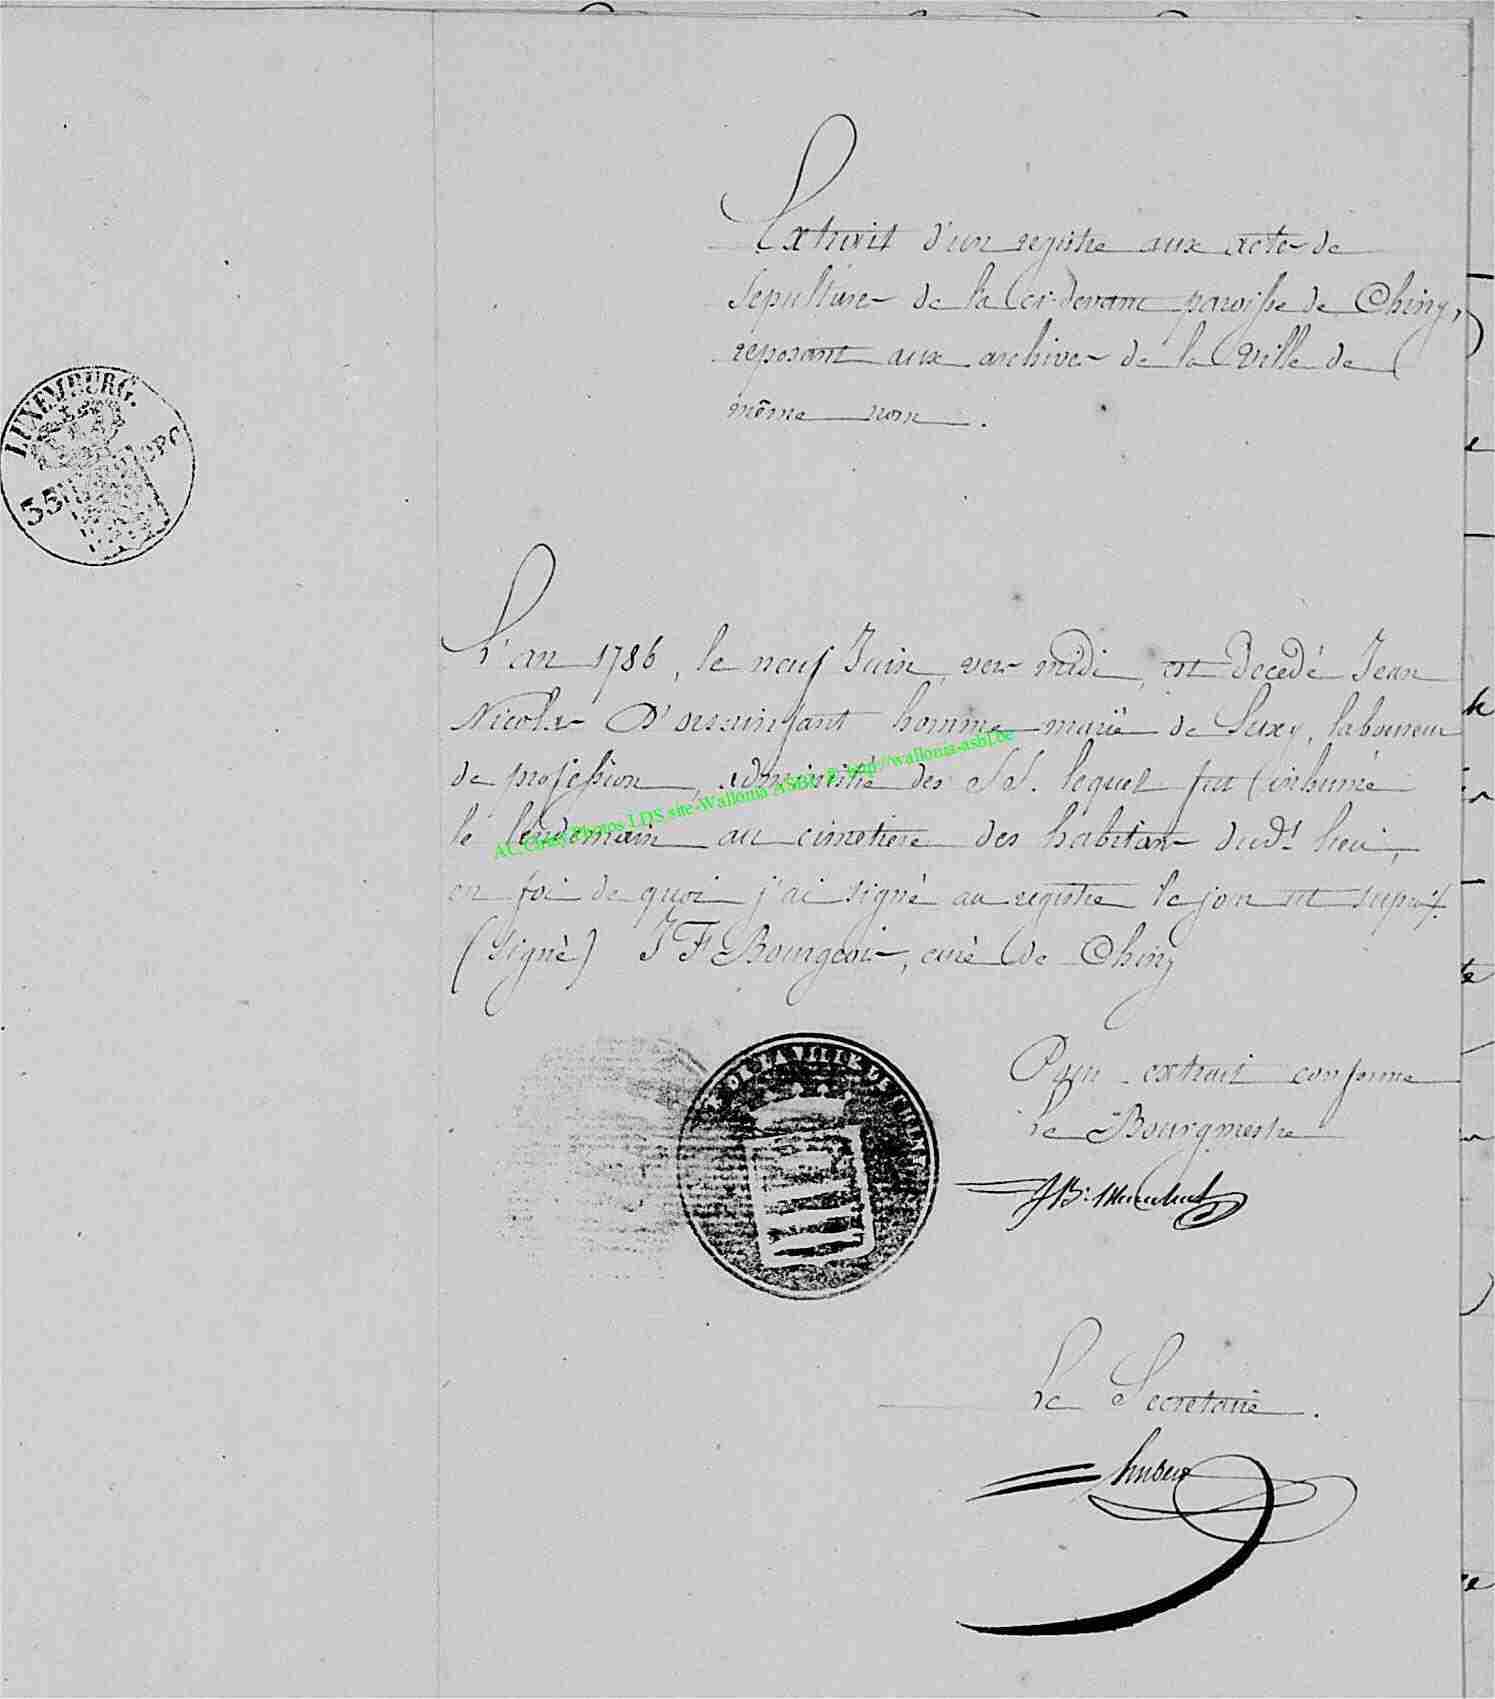 Extrait d'un registre aux actes de
Sépultures de la ci-devant paroisse de Chiny,
reposant aux archives de la Ville de
même nom.
LUXEMBURG.
35
L'an 1786, le neuf Juin, vers midi, est décédé Jean
Nicolas homme marié de Suxy, laboureur
de profession, administré des SS. lequel fut inhumé
le lendemain au cimetière des habitans dud.t lieu,
en foi de quoi j'ai signé au registre le jour ut supra.
(signé) J F Bourgeois, curé de Chiny
AC Photos LDS site-Wallonia ASBL http://wallonia-asbl.be
DE LA VILLE DE CHINY
Pour extrait conforme
le Bourgmestre
JB:
Le Secrétaire.